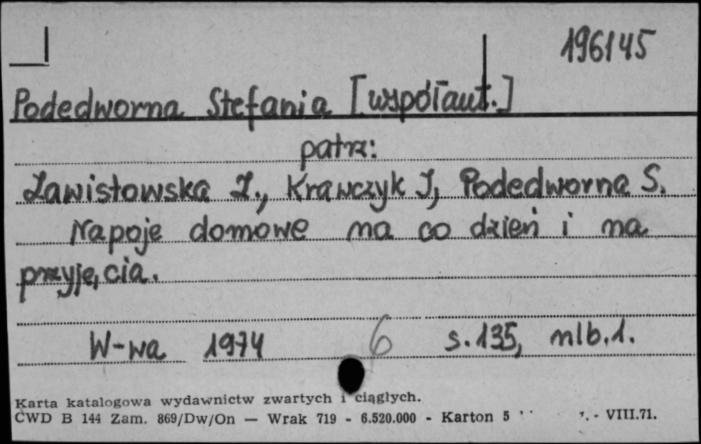 196145
Podedworna Stefania [współaut.]
patrz:
Zawistowska Z., Krawczyk I, Podedworna S.
Napoje domowe na co dzień i na
przyjęcia.
W-wa 1974 6 s.135, nlb.1.
Karta katalogowa wydawnictw zwartych i ciągłych.
CWD B 144 Zam. 869/Dw/On — Wrak 719 - 6.520.000 - Karton 5 - VIII.71.